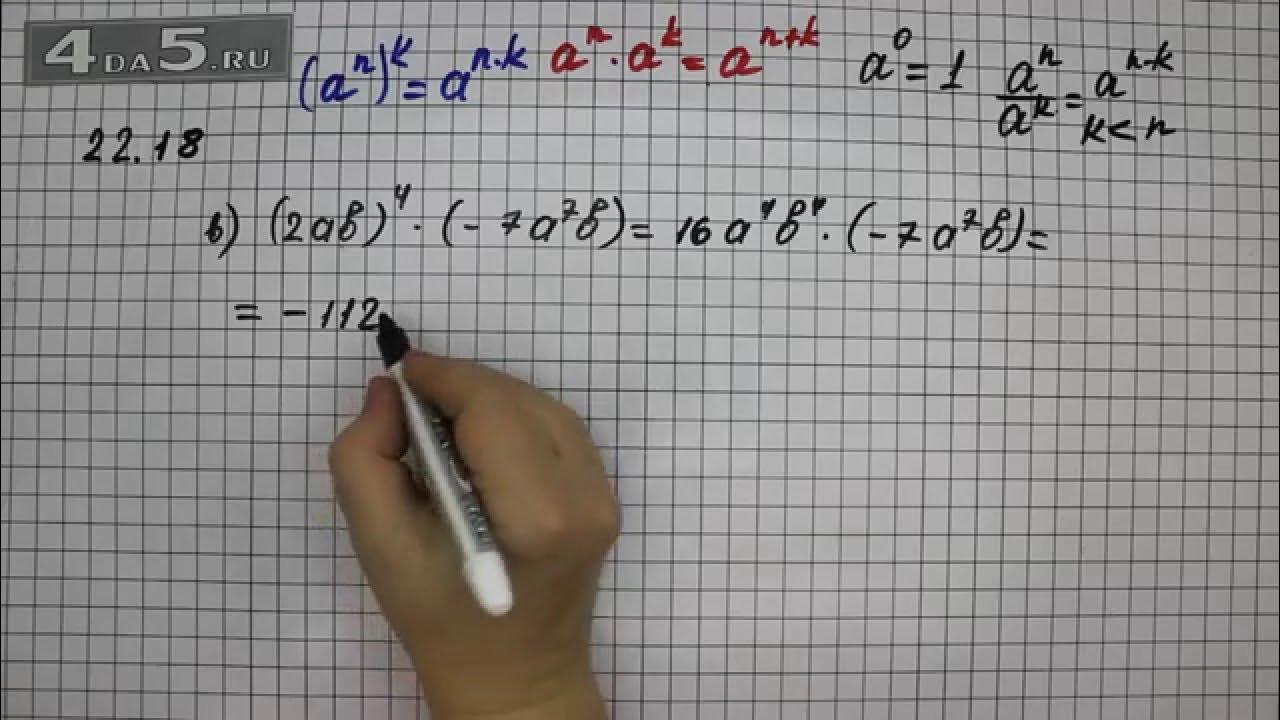 4DA5.RU
(aⁿ)ᵏ = aⁿ·ᵏ aⁿ · aᵏ = aⁿ⁺ᵏ a⁰ = 1 aⁿ/aᵏ = aⁿ⁻ᵏ
k < n
22.18
в) (2ав)⁴ · (- 7а⁷в) = 16 а⁴в⁴ · (- 7 а⁷в) =
= - 112